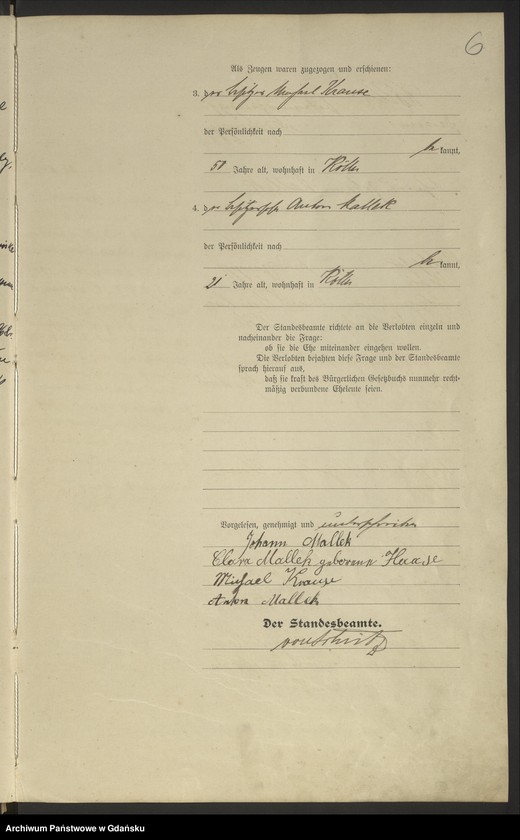 6
Als Zeugen waren zugezogen und erschienen:
3. der Besitzer Michael Krause
der Persönlichkeit nach
be kannt,
58 Jahre alt, wohnhaft in Kölln
4. der Besitzersohn Anton Mallek
der Persönlichkeit nach
be kannt,
21 Jahre alt, wohnhaft in Kölln
Der Standesbeamte richtete an die Verlobten einzeln und
nacheinander die Frage:
ob sie die Ehe miteinander eingehen wollen.
Die Verlobten bejahten diese Frage und der Standesbeamte
sprach hierauf aus,
daß sie kraft des Bürgerlichen Gesetzbuchs nunmehr recht-
mäßig verbundene Eheleute seien.
Vorgelesen, genehmigt und unterschrieben
Johann Mallek
Clara Mallek geborene Haase
Michael Krause
Anton Mallek
Der Standesbeamte.
Archiwum Państwowe w Gdańsku